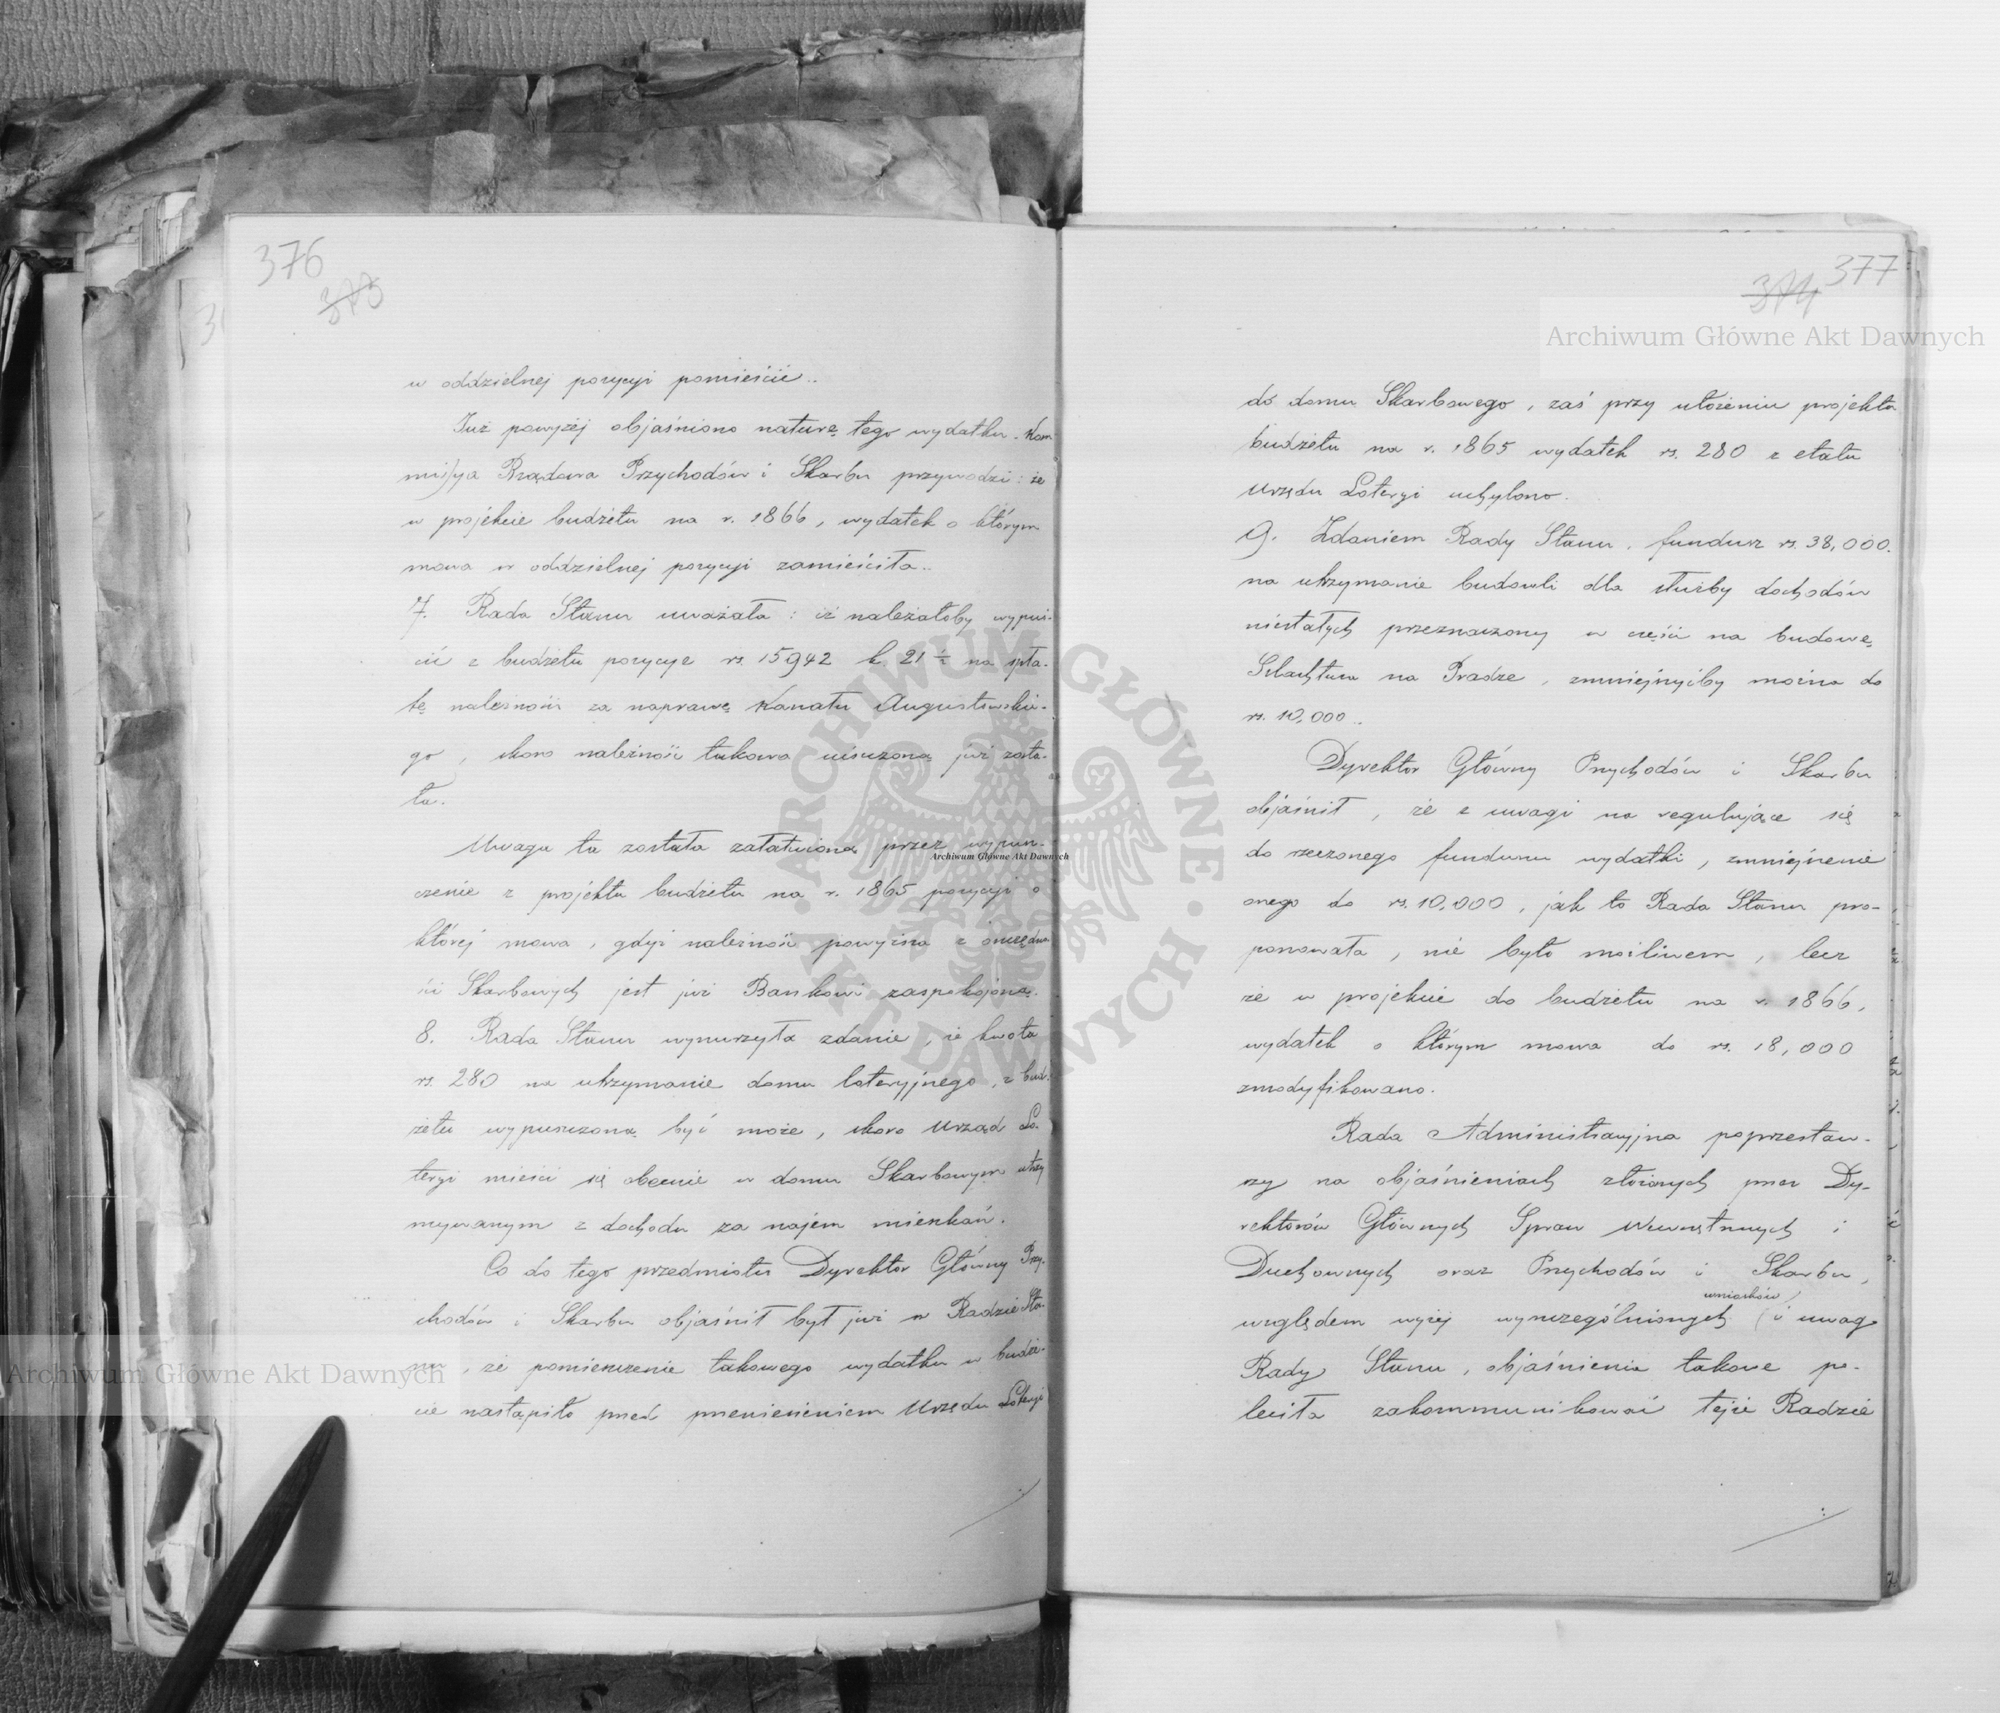 376
373
w oddzielnej pozycyi pomieścić..
Już powyżej objaśniono naturę tego wydatku. Kom
missya Rządowa Przychodów i Skarbu przywodzi: że
w projekcie budżetu na r. 1866, wydatek o którym
mowa w oddzielnej pozycyi zamieściła..
7. Rada Stanu uważała: iż należałoby wypuś-
cić z budżetu pozycye rs. 15942 k. 21 ½ na spła-
tę należności za naprawę Kanału Augustowskie-
go, skoro należność takowa uiszczoną już zosta-
ła.
Uwaga ta została załatwioną przez wypusz-
czenie z projektu budżetu na r. 1865 pozycyi o
której mowa, gdyż należność powyższa z
ści Skarbowych jest już Bankowi zaspokojoną.
8. Rada Stanu wynurzyła zdanie, że kwota
rs. 280 na utrzymanie domu loteryjnego, z bud-
żetu wypuszczoną być może, skoro Urząd Lo-
teryi mieści się obecnie w domu Skarbowym utrzy
mywanym z dochodu za najem mieszkań.
Co do tego przedmiotu Dyrektor Główny Przy-
chodów i Skarbu objaśnił był już w Radzie Sta-
nu, że pomieszczenie takowego wydatku w budże-
cie nastąpiło przed przeniesieniem Urzędu Loteryi
377
374
do domu Skarbowego, zaś przy ułożeniu projektu
budżetu na r. 1865 wydatek rs. 280 z etatu
Urzędu Loteryi uchylono.
9. Zdaniem Rady Stanu, fundusz rs. 38,000.
na utrzymanie budowli dla służby dochodów
niestałych przeznaczony w części na budowę
Szlachtuza na Pradze, zmniejszyćby można do
rs. 10,000.
Dyrektor Główny Przychodów i Skarbu
objaśnił, że z uwagi na regulujące się
do rzeczonego funduszu wydatki, zmniejszenie
onego do rs. 10,000, jak to Rada Stanu pro-
ponowała, nie było możliwem, lecz
że w projekcie do budżetu na r. 1866,
wydatek o którym mowa do rs. 18,000
zmodyfikowano.
Rada Administracyjna poprzestaw-
szy na objaśnieniach złożonych przez Dy-
rektorów Głównych Spraw Wewnętrznych i
Duchownych oraz Przychodów i Skarbu,
względem wyżej wyszczególnionych wniosków i uwag
Rady Stanu, objaśnienia takowe po-
leciła zakommunikować tejże Radzie
Archiwum Główne Akt Dawnych
Archiwum Główne Akt Dawnych
Archiwum Główne Akt Dawnych
ARCHIWUM GŁÓWNE · AKT DAWNYCH ·